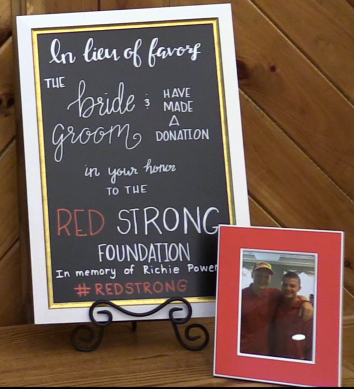 In lieu of favors
THE
bride & HAVE
MADE
groom A
DONATION
in your honor
TO THE
RED STRONG
FOUNDATION
In memory of Richie Power
#REDSTRONG